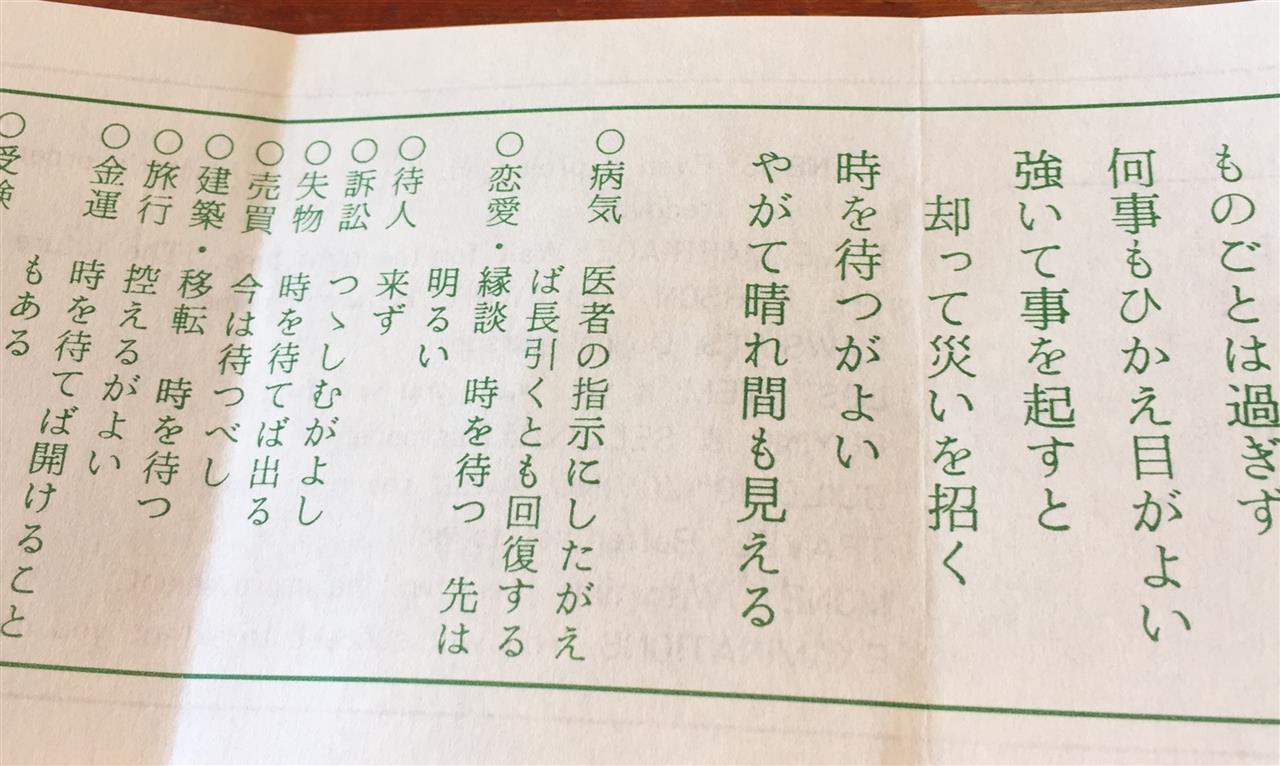 ものごとは過ぎず
何事もひかえ目がよい
強いて事を起すと
却って災いを招く
時を待つがよい
やがて晴れ間も見える
○病気 医者の指示にしたがえ
ば長引くとも回復する
○恋愛・縁談 時を待つ 先は
明るい
○待人 来ず
○訴訟 つゝしむがよし
○失物 時を待てば出る
○売買 今は待つべし
○建築・移転 時を待つ
○旅行 控えるがよい
○金運 時を待てば開けること
もある
○受験